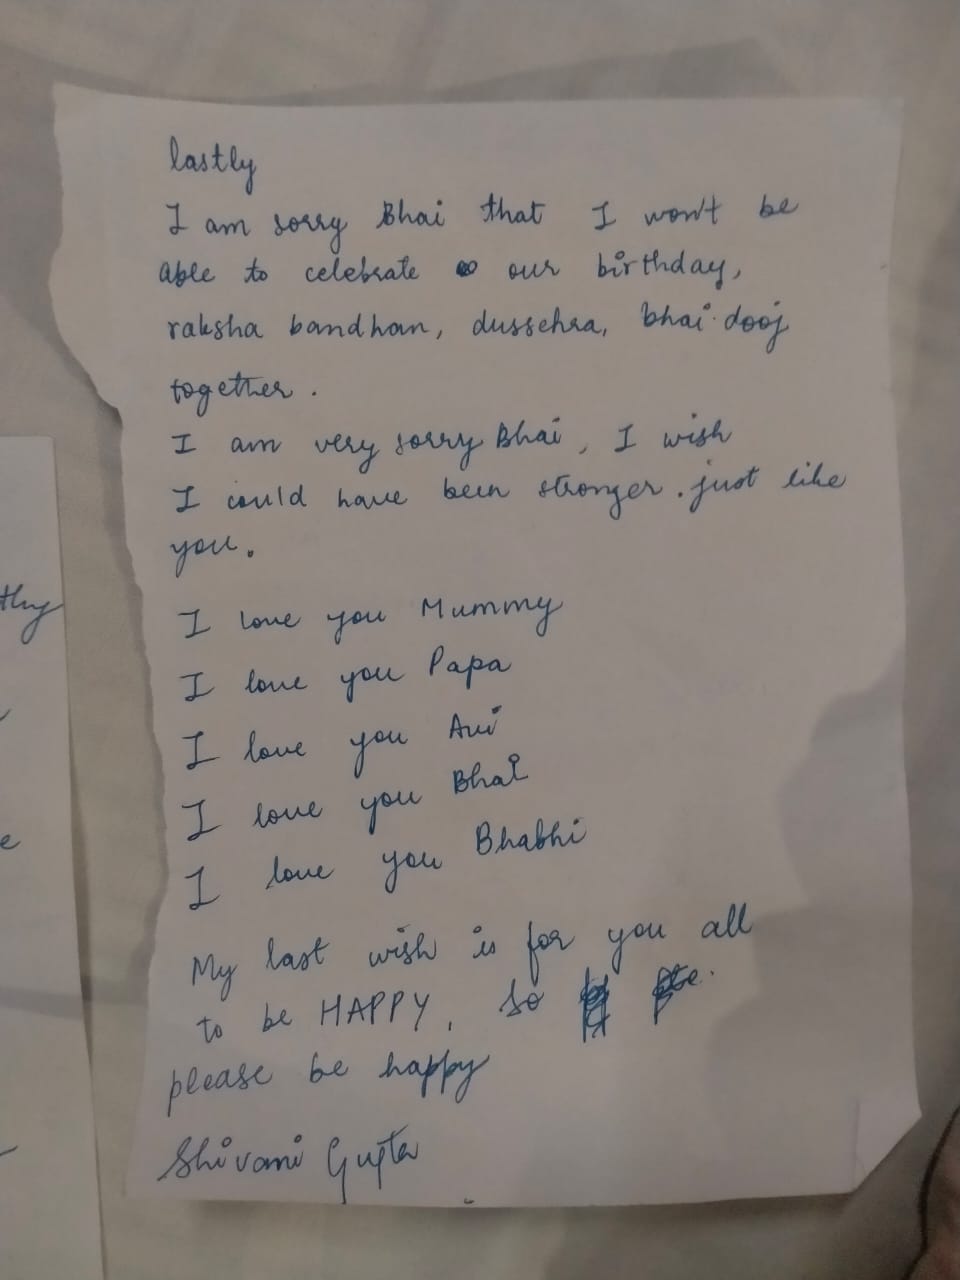 lastly
I am sorry Bhai that I won't be
able to celebrate our birthday,
raksha bandhan, dussehra, bhai dooj
together.
I am very sorry Bhai, I wish
I could have been stronger. just like
you.
I love you Mummy
I love you Papa
I love you Avi
I love you Bhai
I love you Bhabhi
My last wish is for you all
to be HAPPY, so
please be happy
Shivani Gupta
thy
e